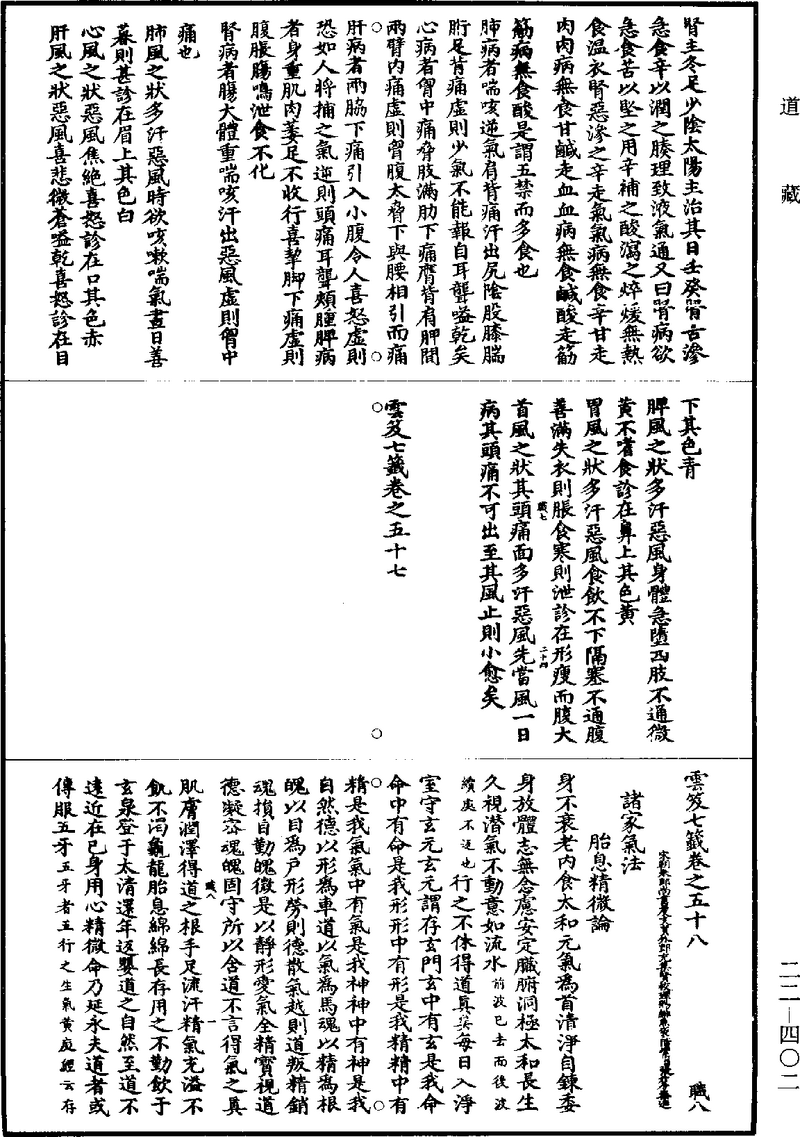 道藏
腎主冬足少陰太陽主治其日壬癸腎苦滲
急食辛以潤之腠理致液氣通又曰腎病欲
急食苦以堅之用辛補之酸瀉之焠煖無熱
食溫衣腎惡滲之辛走氣氣病無食辛甘走
肉肉病無食甘鹹走血血病無食鹹酸走筋
筋病無食酸是謂五禁而多食也
肺病者喘咳逆氣肩背痛汗出尻陰股膝腨
胻足背痛虛則少氣不能報自耳聾嗌乾矣
心病者胷中痛脅肢滿肋下痛膺背肩胛間
兩臂內痛虛則胷腹大脅下與腰相引而痛
肝病者兩脇下痛引入小腹令人喜怒虛則
恐如人將捕之氣逆則頭痛耳聾頰腫脾病
者身重肌肉萎足不收行喜掣脚下痛虛則
腹脹腸鳴泄食不化
腎病者腸大體重喘咳汗出惡風虛則胷中
痛也
肺風之狀多汗惡風時欲咳嗽喘氣晝日善
暮則甚診在眉上其色白
心風之狀惡風焦絶喜怒診在口其色赤
肝風之狀惡風喜悲微蒼嗌乾喜怒診在目
下其色青
脾風之狀多汗惡風身體怠墮四肢不通微
黃不嗜食診在鼻上其色黃
胃風之狀多汗惡風食飲不下隔塞不通腹
善滿失衣則脹食寒則泄診在形瘦而腹大
職七 二十四
首風之狀其頭痛面多汗惡風先當風一日
病其頭痛不可出至其風止則小愈矣
雲笈七籤卷之五十七
雲笈七籤卷之五十八 職八
諸家氣法
胎息精微論
身不衰老內食太和元氣爲首清淨自鍊委
身放體志無念慮安定臟腑洞極太和長生
久視潛氣不動意如流水前波已去而後波
續處不返也行之不休得道真矣每日入淨
室守玄元玄元謂存玄門玄中有玄是我命
命中有命是我形形中有形是我精精中有
精是我氣氣中有氣是我神神中有神是我
自然德以形爲車道以氣爲馬魂以精爲根
魄以目爲戶形勞則德散氣越則道叛精銷
魂損目勤魄微是以靜形愛氣全精寶視道
德凝密魂魄固守所以舍道不言得氣之眞
職八 一
肌膚潤澤得道之根手足流汗精氣充溢不
飢不渴龜龍胎息綿綿長存用之不勤飲于
玄泉登于太清還年返嬰道之自然至道不
遠近在己身用心精微命乃延永夫道者或
傳服五牙五牙者五行之生氣黃庭經云存
二二—四〇二